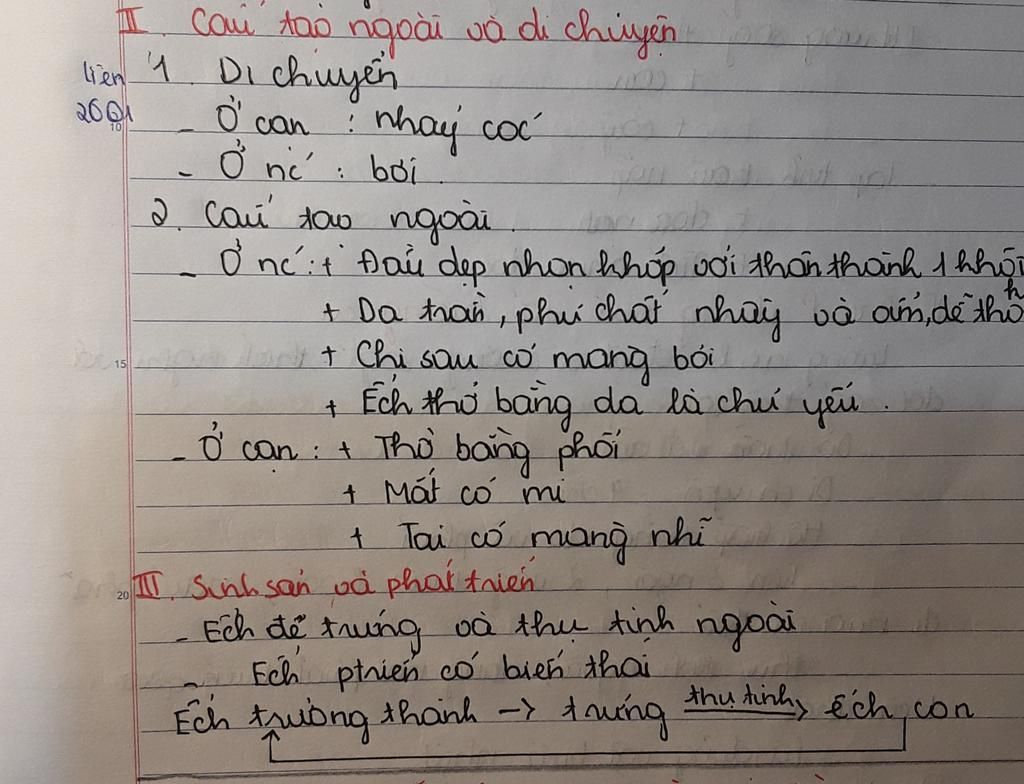 II. Cấu tạo ngoài và di chuyển
1. Di chuyển
- Ở cạn : nhảy cóc
- Ở nc' : bơi.
2. Cấu tạo ngoài.
- Ở nc': + Đầu dẹp nhọn khớp với thân thành 1 khối
+ Da trần, phủ chất nhầy và ẩm, dễ thở
+ Chi sau có màng bơi
15
+ Ếch thở bằng da là chủ yếu.
- Ở cạn : + Thở bằng phổi
+ Mắt có mi
+ Tai có màng nhĩ
20 III. Sinh sản và phát triển
- Ếch đẻ trứng và thụ tinh ngoài
- Ếch ptriển có biến thái
Ếch trưởng thành -> trứng thụ tinh ếch con